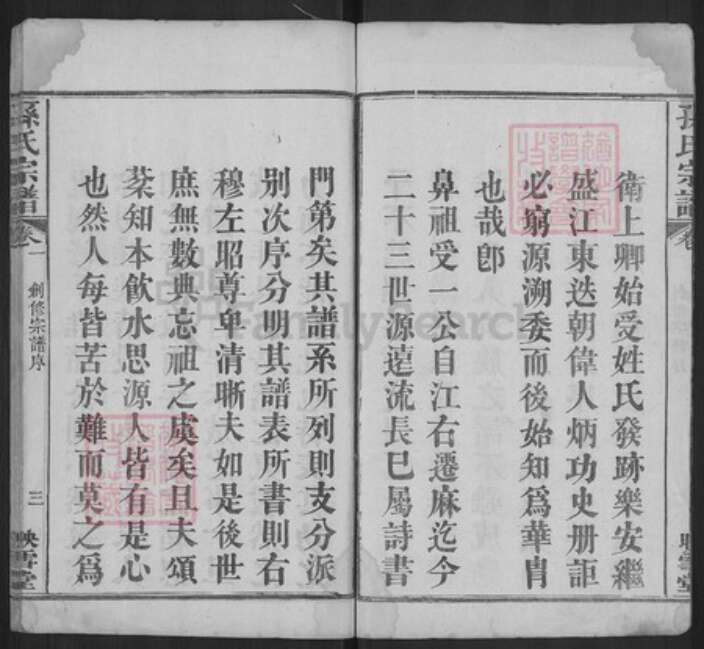 孫氏宗譜
卷
衛上卿始受姓氏發跡樂安繼
盛江東迭朝偉人炳功史册詎
必窮源溯委而後始知爲華胄
也哉卽
鼻祖受一公自江右遷麻迄今
二十三世源遠流長巳屬詩書
映雪堂
門第矣其譜系所列則支分派
别次序分明其譜表所書則右
穆左昭尊卑清晰夫如是後世
庶無數典忘祖之虞矣且夫頌
棻知本飲水思源人皆有是心
也然人每皆苦於難而莫之爲
孫氏宗譜
卷一
創修宗譜序
三
映雪堂
FamilySearch